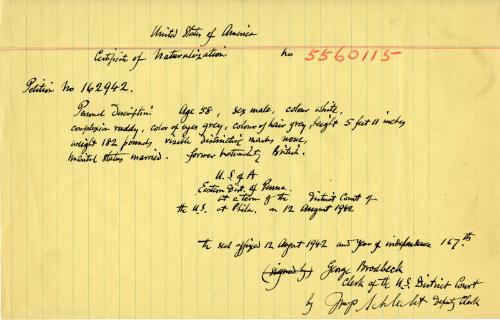 United States of America
Certificate of Naturalization No 5560115
Petition No 162942.
Personal Description: Age 58, sex male, colour white,
complexion ruddy, color of eyes grey, colour of hair grey, height 5 feet 11 inches
weight 182 pounds, visible distinctive marks none,
Marital Status married. former nationality British.
U.S of A
Eastern Dist. of Penna.
at a term of the District Court of
the U.S. at Phila. on 12 August 1942
the seal affixed 12 August 1942 and year of independence 167th
(signed by) George Brodbeck
Clerk of the U.S. District Court
by Deputy Clerk